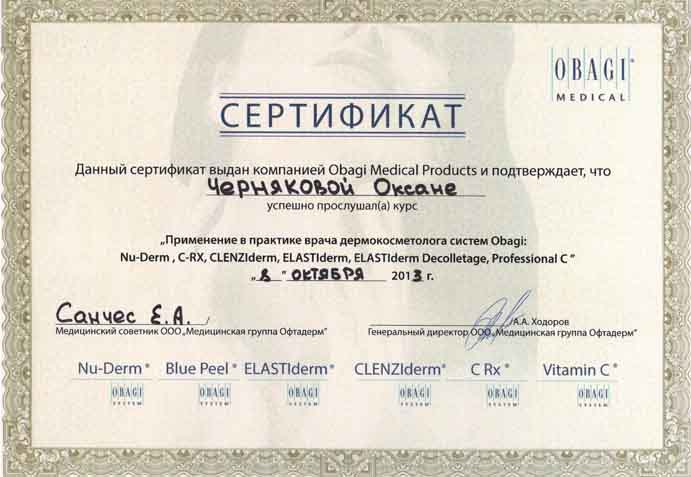 OBAGI®
MEDICAL
СЕРТИФИКАТ
Данный сертификат выдан компанией Obagi Medical Products и подтверждает, что
Черняковой Оксане
успешно прослушал(а) курс
„Применение в практике врача дермокосметолога систем Obagi:
Nu-Derm , C-RX, CLENZIderm, ELASTIderm, ELASTIderm Decolletage, Professional C ”
„ 8 ” октября 2013 г.
Санчес Е.А. /
Медицинский советник ООО „Медицинская группа Офтадерм”
/А.А. Ходоров
Генеральный директор ООО „Медицинская группа Офтадерм”
Nu-Derm® Blue Peel® ELASTIderm® CLENZIderm® C Rx® Vitamin C®
OBAGI SYSTEM OBAGI SYSTEM OBAGI SYSTEM OBAGI SYSTEM OBAGI SYSTEM OBAGI SYSTEM